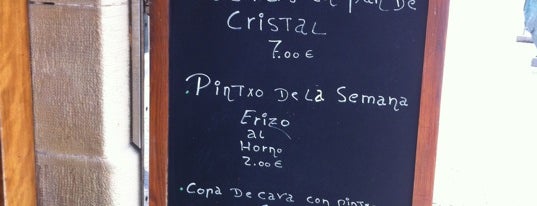 en pan De
CRISTAL
7.00 €
.PINTXO De La Semana
Erizo
al
Horno
2.00 €
.Copa De cava con pintxo